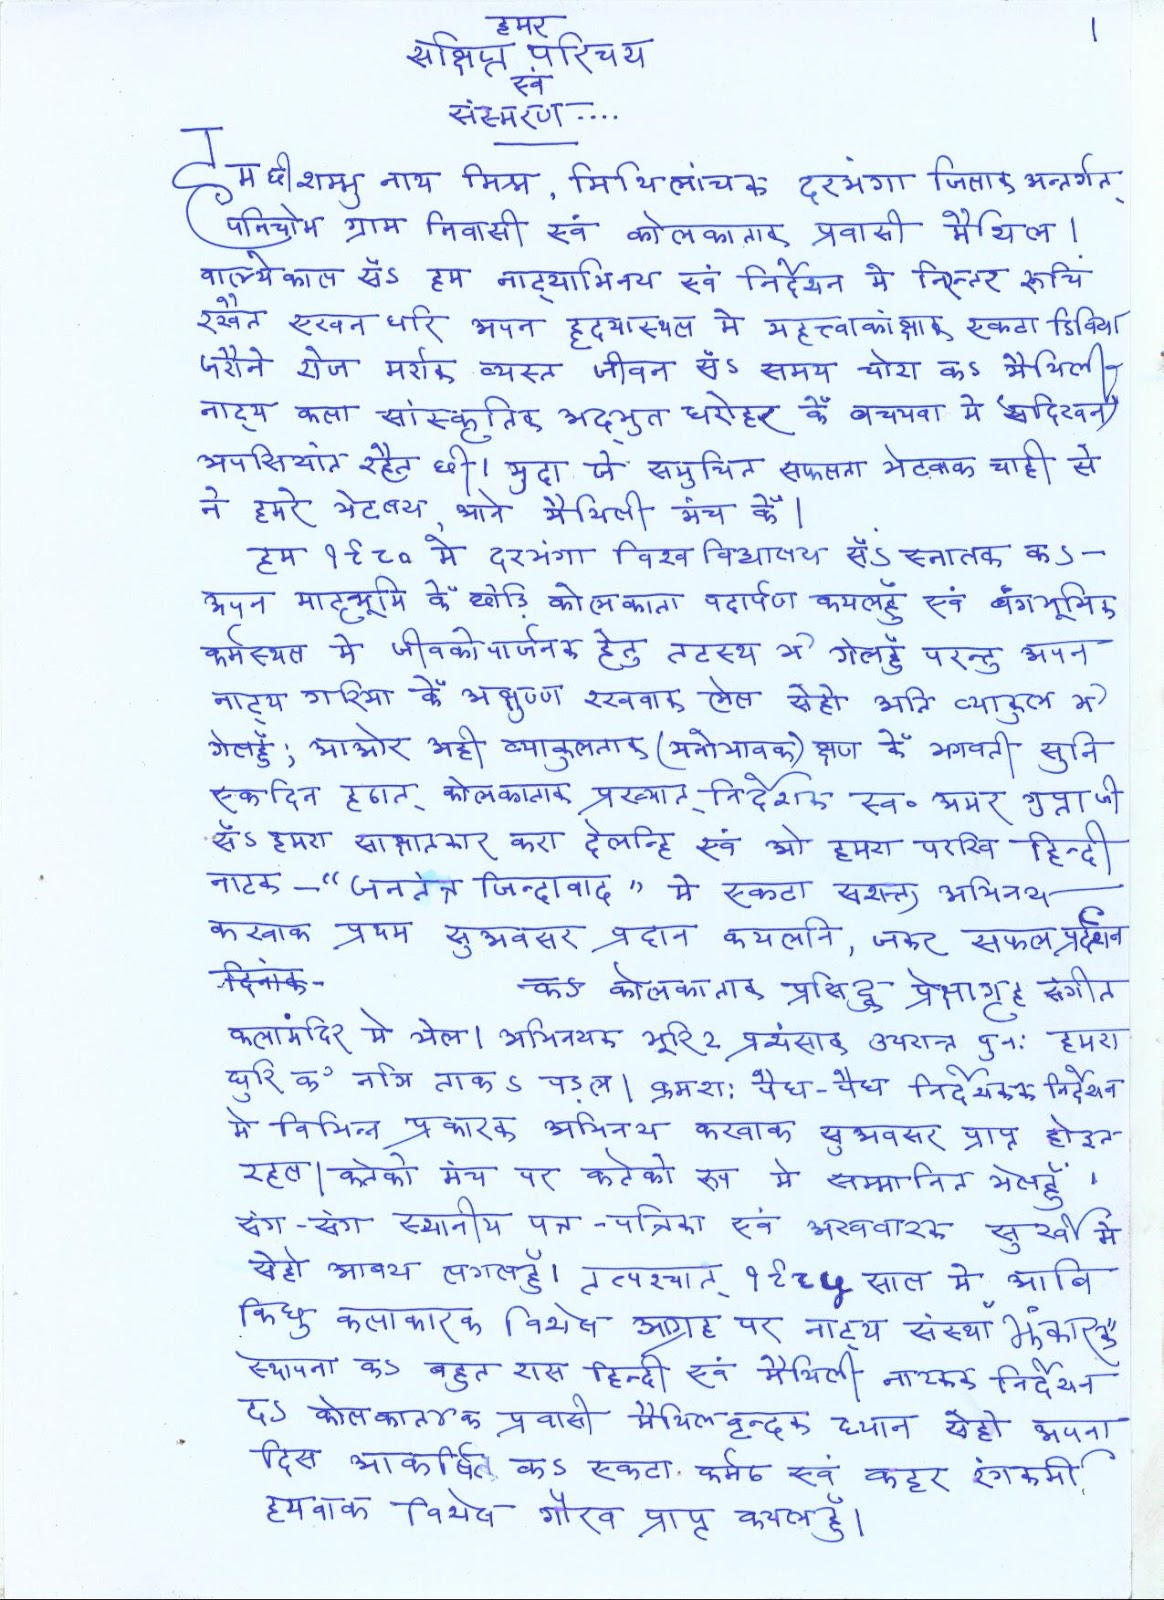 हमर
1
संक्षिप्त परिचय
एवं
संस्मरण....
हम छी शम्भु नाथ मिश्र, मिथिलांचक दरभंगा जिलाक अन्तर्गत्
पनिचोभ ग्राम निवासी एवं कोलकाताक प्रवासी मैथिल।
वाल्येकाल सँऽ हम नाट्याभिनय एवं निर्देशन मे निरन्तर रूचि
रखैत एखन धरि अपन हृदयास्थल मे महत्त्वाकांक्षाक एकटा डिबिया
जरौने रोज मर्राक व्यस्त जीवन सँऽ समय चोरा कऽ मैथिली
नाट्य कला सांस्कृतिक अद्भुत धरोहर केँ बचयवा मे सदिखन
अपसियांत रहैत छी। मुदा जे समुचित सफलता भेटबाक चाही से
ने हमरे भेटलय, आने मैथिली मंच केँ।
हम १९८० मे दरभंगा विश्वविद्यालय सँऽ स्नातक कऽ-
अपन मातृभूमि केँ छोड़ि कोलकाता पदार्पण कयलहुँ एवं बंगभूमिक
कर्मस्थल मे जीवकोपार्जनक हेतु तटस्थ भ' गेलहुँ परन्तु अपन
नाट्य गरिमा केँ अक्षुण्ण रखवाक लेल सेहो अति व्याकुल भ'
गेलहुँ; आओर अही व्याकुलताक (मनोभावक) क्षण केँ भगवती सुनि
एकदिन हठात् कोलकाताक प्रख्यात् निर्देशक स्व० अमर गुप्ता जी
सँऽ हमरा साक्षात्कार करा देलन्हि एवं ओ हमरा परखि हिन्दी
नाटक - "जनतंत्र जिन्दावाद" मे एकटा सशक्त अभिनय
करवाक प्रथम सुअवसर प्रदान कयलनि, जकर सफल प्रर्दशन
दिनांक- कऽ कोलकाताक प्रसिद्ध प्रेक्षागृह संगीत
कलामंदिर मे भेल। अभिनयक भूरि २ प्रशंसाक उपरान्त पुनः हमरा
घुरि क' नञि ताकऽ पड़ल। क्रमशः पैघ-पैघ निर्देशकक निर्देशन
मे विभिन्न प्रकारक अभिनय करवाक सुअवसर प्राप्त होइत
रहल। कतेको मंच पर कतेको रूप मे सम्मानित भेलहुँ।
संग-संग स्थानीय पत्र-पत्रिका एवं अखवारक सुर्खी मे
सेहो आवय लगलहुँ। तत्पश्चात् १९८५ साल मे आबि
किछु कलाकारक विशेष आग्रह पर नाट्य संस्था झंकारक
स्थापना कऽ बहुत रास हिन्दी एवं मैथिली नाटकक निर्देशन
दऽ कोलकाताक प्रवासी मैथिलवृन्दक ध्यान सेहो अपना
दिस आकर्षित कऽ एकटा कर्मठ एवं कट्टर रंगकर्मी
हयवाक विशेष गौरव प्राप्त कयलहुँ।